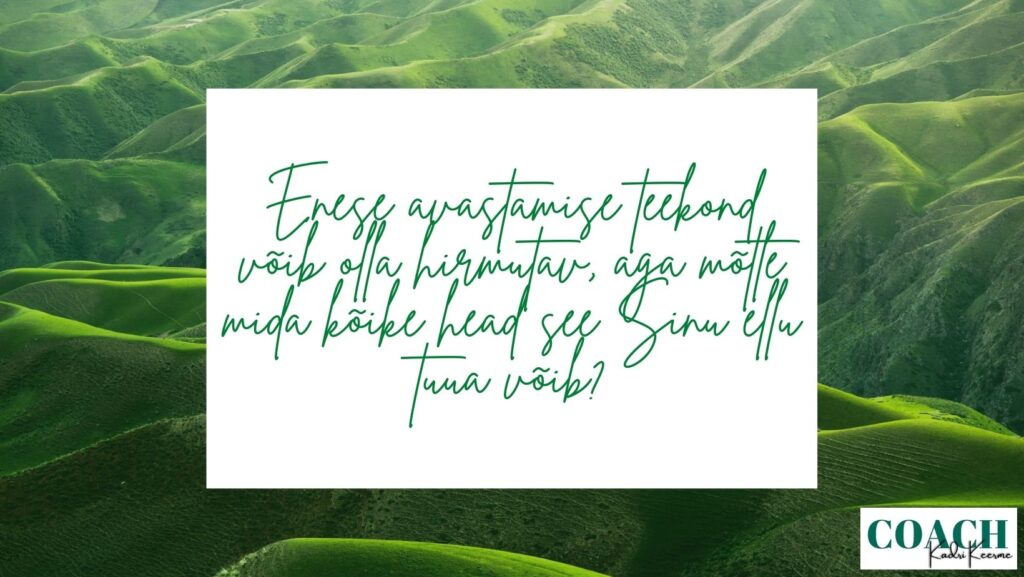 Enese avastamise teekond
võib olla hirmutav, aga mõtle
mida kõike head see Sinu ellu
tuua võib?
COACH
Kadri Keerme